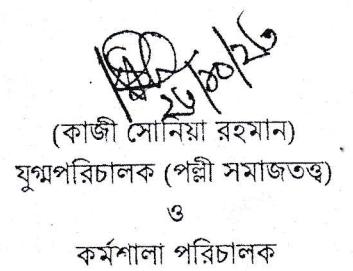 ২৬/১০/২৩
(কাজী সোনিয়া রহমান)
যুগ্মপরিচালক (পল্লী সমাজতত্ত্ব)
ও
কর্মশালা পরিচালক